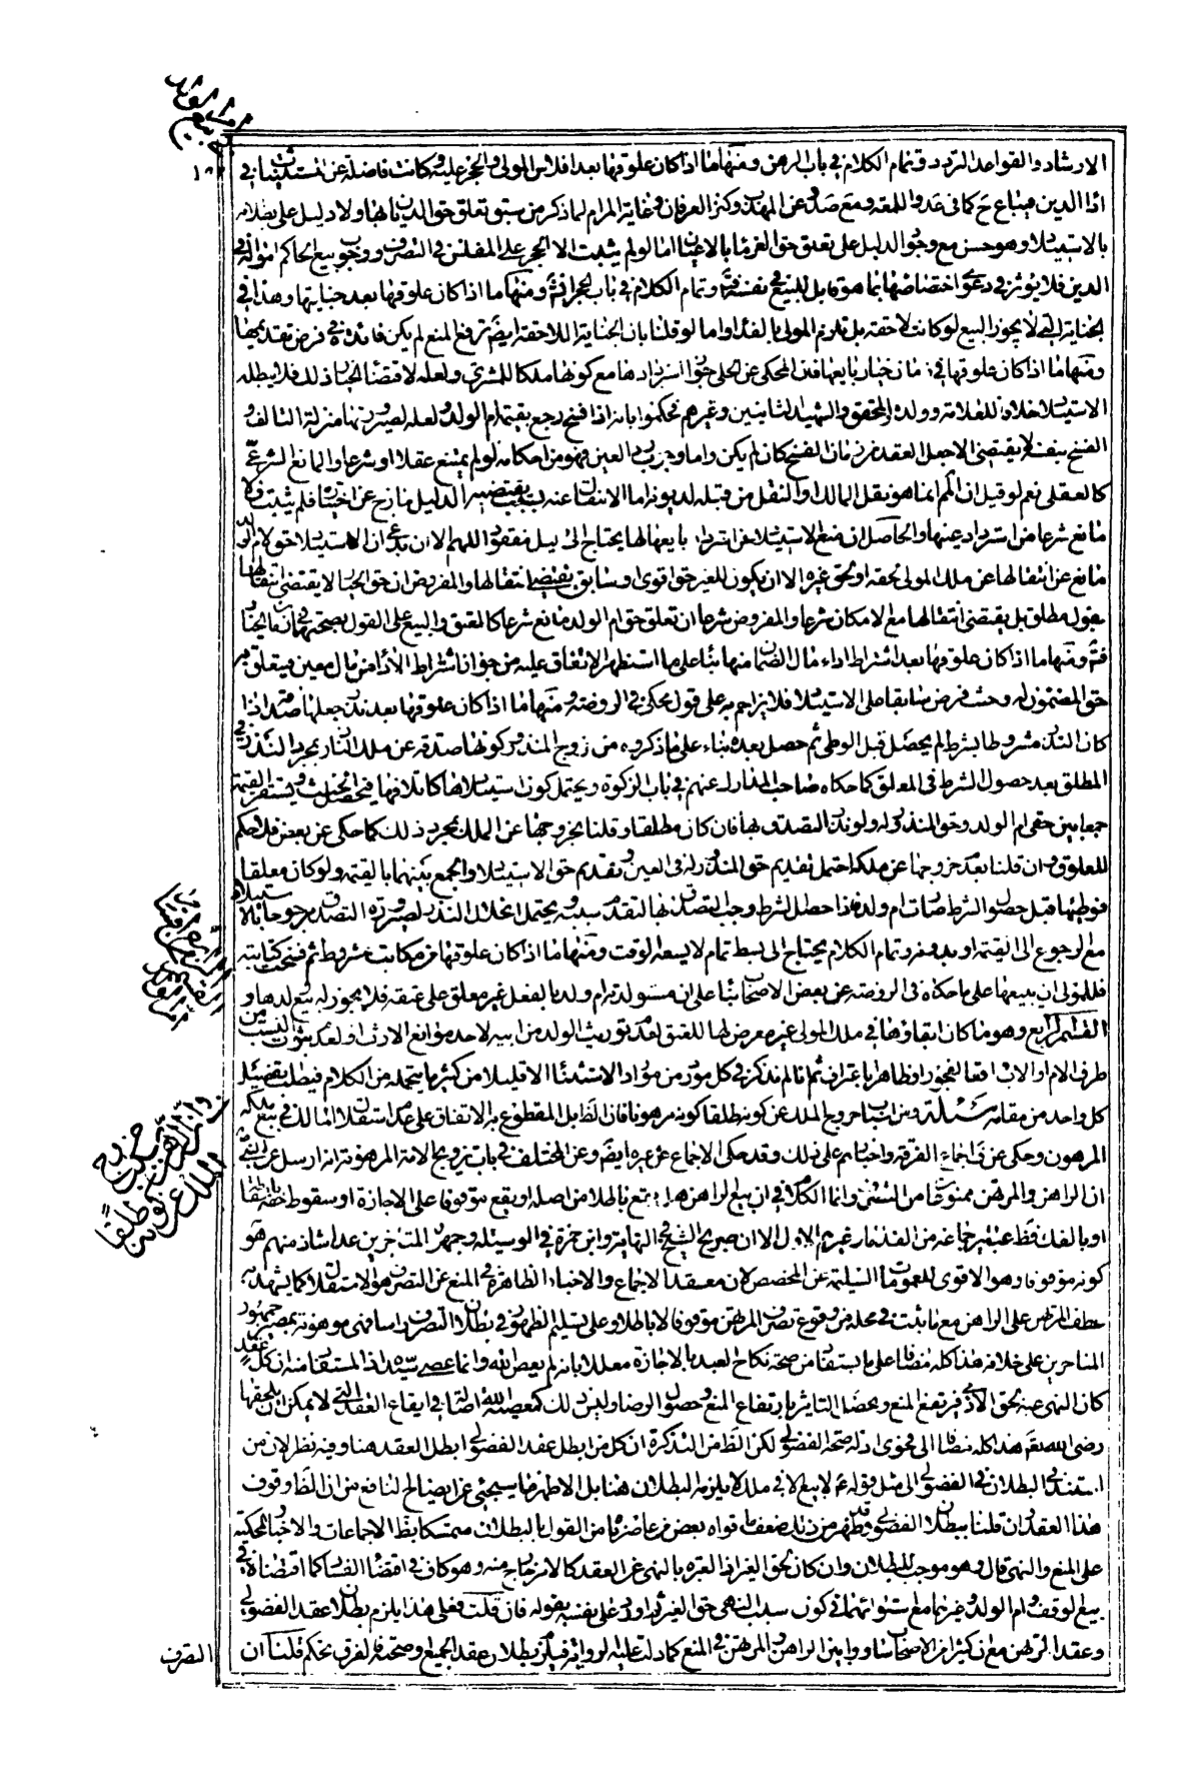 الارشاد والقواعد التردد وتمام الكلام فى باب الرهن ومنها ما اذا كان علوقها بعد افلاس المولى والحجر عليه وكانت فاضلة عن المستثنيات فى
اداء الدين فتباع ح كما فى القواعد واللمعة ومع صد عن المهذب وكنز العرفان وغاية المرام لما ذكر من سبق تعلق حق الديان بها ولا دليل على بطلانه
بالاستيلاد وهو حسن مع وجود الدليل على تعلق حق الغرماء بالاعيان اما لو لم يثبت الا الحجر على المفلس فى التصرف ووجوب بيع الحاكم امواله فى
الدين فلا يؤثر فى دعوى اختصاصها بما هو قابل للبيع فى نفسه فت وتمام الكلام فى باب الحجر انش ومنها ما اذا كان علوقها بعد جنايتها وهذا فى
الجناية التى لا يجوز البيع لو كانت لاحقة بل يلزم المولى بالفداء واما لو قلنا بان الجناية اللاحقة ايضا ترفع المنع لم يكن فائدة فى فرض تقديمها
ومنها ما اذا كان علوقها فى زمان خيار بايعها فان المحكى عن الحلى جواز استردادها مع كونها ملكا للمشترى ولعله لاقتضاء الخيار ذلك فلا يبطله
الاستيلاد خلافا للعلامة وولده والمحقق والشهيد الثانيين وغيرهم فحكموا بانه اذا فسخ رجع بقيمة ام الولد ولعله لصيرورتها منزلة التالف و
الفسخ بنفسه لا يقتضى الا جعل العقد من زمان الفسخ كان لم يكن واما وجوب رد العين فهو من احكامه لو لم يمتنع عقلا او شرعا والمانع الشرعى
كالعقلى نعم لو قيل ان الممنوع انما هو نقل المالك او النقل من قبله لديونه اما الانتقال عنه بسبب يقتضيه الدليل خارج عن اختياره فلم يثبت فلا
مانع شرعا من استرداد عينها والحاصل ان منع الاستيلاد عن استرداد بايعها لها يحتاج الى دليل مفقود اللهم الا ان يدعى ان الاستيلاد حق لام الولد
مانع عن انتقالها عن ملك المولى لحقه او لحق غيره الا ان يكون للغير حق اقوى او سابق يقتضى انتقالها والمفروض ان حق الخيار لا يقتضى انتقالها
بقول مطلق بل يقتضى انتقالها مع الامكان شرعا والمفروض شرعا ان تعلق حق ام الولد مانع شرعا كالعتق والبيع على القول بصحتهما فى زمان الخيار
فت ومنها ما اذا كان علوقها بعد اشتراط اداء مال الضمان منها بناء على ما استظهر الاتفاق عليه من جواز اشتراط الاداء من مال معين فيتعلق به
حق المضمون له وحيث فرض سابقا على الاستيلاد فلا يزاحم به على قول محكى فى الروضة ومنها ما اذا كان علوقها بعد نذر جعلها صدقة اذا
كان النذر مشروطا بشرط لم يحصل قبل الوطى ثم حصل بعده بناء على ما ذكروه من خروج المنذور كونها صدقة عن ملك الناذر بمجرد النذر فى
المطلق وبعد حصول الشرط فى المعلق كما حكاه صاحب المدارك عنهم فى باب الزكوة ويحتمل كون استيلادها كاتلافها فيحصل الحنث ويستقر القيمة
جمعا بين حقى ام الولد وحق المنذور له ولو نذر التصدق بها فان كان مطلقا وقلنا بخروجها عن الملك بمجرد ذلك كما حكى عن بعض فلا حكم
للعلوق وان قلنا بعدم خروجها عن ملكه احتمل تقديم حق المنذور له فى العين وتقديم حق الاستيلاد والجمع بينهما بالقيمة ولو كان معلقا
فوطئها قبل حصول الشرط صارت ام ولد فاذا حصل الشرط وجب التصدق بها لتقدم سببه ويحتمل انحلال النذر لصيرورة التصدق مرجوحا بالاستيلاد
مع الرجوع الى القيمة او بدونه وتمام الكلام يحتاج الى بسط تمام لا يسعه الوقت ومنها ما اذا كان علوقها من مكاتب مشروط ثم فسخت كتابته
فللمولى ان يبيعها على ما حكاه فى الروضة عن بعض الاصحاب بناء على ان مستولدته ام ولد بالفعل غير معلق على عتقه فلا يجوز له بيع ولدها و
القسم الرابع وهو ما كان ابقاؤها فى ملك المولى غير معرض لها للعتق لعدم توريث الولد من ابيه لاحد موانع الارث او لعدم ثبوت النسب من
طرف الام او الاب واقعا لفجور او ظاهرا باعتراف ثم انا لم نذكر فى كل مورد من موارد الاستثناء الا قليلا من كثير ما يتحمله من الكلام فيطلب تفصيل
كل واحد من مقامه مسئلة ومن اسباب خروج الملك عن كونه طلقا كونه مرهونا فان الظ بل المقطوع به الاتفاق على عدم استقلال المالك فى بيع ملكه
المرهون وحكى عن ف اجماع الفرقة واخبارهم على ذلك وقد حكى الاجماع عن غيره ايضا وعن المختلف فى باب تزويج الامة المرهونة انه ارسل عن النبى ص
ان الراهن والمرتهن ممنوعان من التصرف وانما الكلام فى ان بيع الراهن هل يقع باطلا من اصله او يقع موقوفا على الاجازة او سقوط حقه باسقاطه
او بالفك فظ عبائر جماعة من القدماء وغيرهم الاول الا ان صريح الشيخ فى النهاية وابن حمزة فى الوسيلة وجمهور المتاخرين عدا شاذ منهم هو
كونه موقوفا وهو الاقوى للعمومات السليمة عن المخصص لان معقد الاجماع والاخبار الظاهرة فى المنع عن التصرف هو الاستقلال كما يشهد به
عطف المرتهن على الراهن مع ما ثبت فى محله من وقوع تصرف المرتهن موقوفا لا باطلا وعلى تسليم الظهور فى بطلان التصرف راسا فهى موهونة بمصير جمهور
المتاخرين على خلافه هذا كله مضافا على ما يستفاد من صحة نكاح العبد بالاجازة معللا بانه لم يعص الله وانما عصى سيده اذ المستفاد منه ان كل عقد
كان النهى عنه لحق الادمى يرتفع المنع ويحصل التاثير بارتفاع المنع وحصول الرضا وليس ذلك كمعصية الله اصالة فى ايقاع العقد التى لا يمكن ان يلحقها
رضى الله تعم هذا كله مضافا الى فحوى ادلة صحة الفضولى لكن الظ من التذكرة ان كل من ابطل عقد الفضولى ابطل العقد هنا وفيه نظر لان من
استند فى البطلان فى الفضولى الى مثل قوله ع لا بيع الا فى ملك لا يلزمه البطلان هنا بل الاظهر ما سيجئى عن ايضاح النافع من ان الظ وقوف
هذا العقد وان قلنا ببطلان الفضولى وقد ظهر من ذلك ضعف ما قواه بعض من عاصرناه من القول بالبطلان متمسكا بظ الاجماعات والاخبار المحكية
على المنع والنهى قال وهو موجب للبطلان وان كان لحق الغير اذ العبرة بالنهى عن العقد كالامر خارج منه وهو كاف فى اقتضاء الفساد كما اقتضاه فى
بيع الوقف وام الولد وغيرهما مع استوائهما فى كون سبب النهى حق الغير ثم اورد على نفسه بقوله فان قلت فعلى هذا يلزم بطلان عقد الفضولى
وعقد المرتهن مع ان كثيرا من الاصحاب ساووا بين الراهن والمرتهن فى المنع كما دلت عليه الرواية فيلزم بطلان عقد الجميع او صحته فالفرق تحكم قلنا ان
التصرف